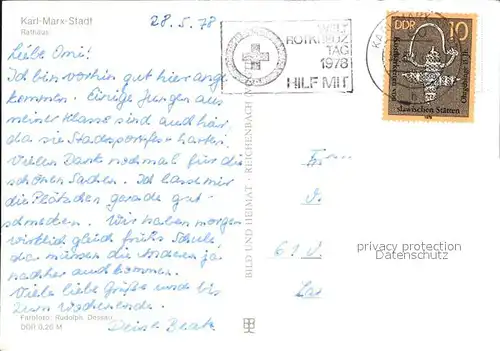 Karl-Marx-Stadt
Rathaus
28.5.78
Liebe Omi!
Ich bin vorhin gut hier ange
kommen. Einige Jungen aus
meiner Klasse sind auch hier,
da sie Stadtsportfest hatten.
Vielen Dank nochmal für die
schönen Sachen. Ich lasse mir
die Plätzchen gerade gut
schmecken. Wir haben morgen
wirklich gleich früh Schule,
da müssen die anderen ja
nachher auch kommen.
Viele liebe Grüße und bis
zum Wochenende.
Farbfoto: Rudolph, Dessau
DDR 0,20 M
BILD UND HEIMAT REICHENBACH
ROTKREUZ
TAG
1978
HILF MIT
DDR 10
slawischen Stätten
privacy protection
Datenschutz